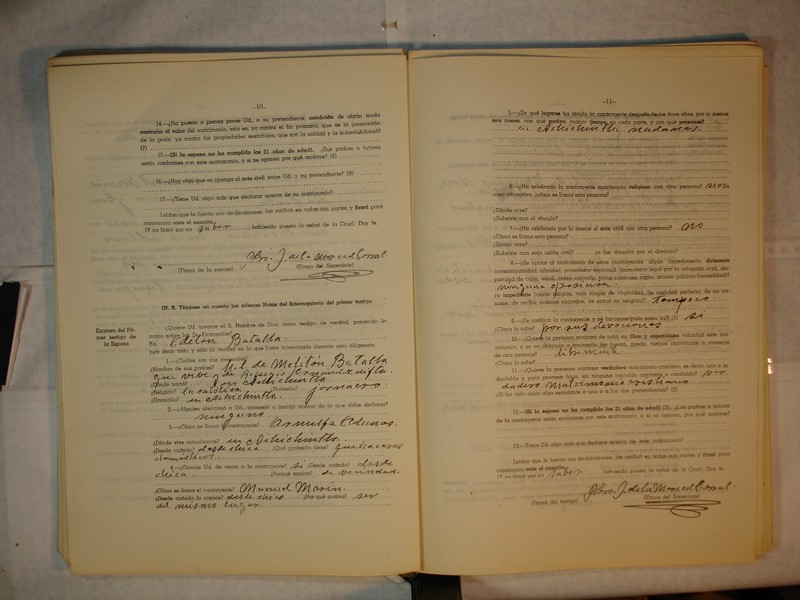 -10-
14.—¿Ha puesto o piensa poner Ud., o su pretendiente, condición de algún modo
contraria al valor del matrimonio, esto es, ya contra el fin primario que es la generación
de la prole, ya contra las propiedades esenciales, que son la unidad y la indisolubilidad?
(7)
15.—(Si la esposa no ha cumplido los 21 años de edad). ¿Sus padres o tutores
están conformes con este matrimonio, o si se oponen por qué motivos? (8)
16.—¿Hay algo que se oponga al acto civil entre Ud. y su pretendiente? (9)
17.—¿Tiene Ud. algo más que declarar acerca de su matrimonio?
Leídas que le fueron sus declaraciones, las ratificó en todas sus partes y firmó para
constancia ante el suscrito.
(Y no firmó por no saber habiendo puesto la señal de la Cruz). Doy fe.
Pbro. J. de la Merced Corral
(Firma de la esposa) (Firma del Sacerdote)
(N. B. Ténganse en cuenta las mismas Notas del Interrogatorio del primer testigo
Examen del Pri-
mer testigo de
la Esposa
¿Quiere Ud. invocar el S. Nombre de Dios como testigo de verdad, poniendo la
mano sobre los Stos. Evangelios?
Yo, Batalla
juro decir toda y sólo la verdad en lo que fuere interrogado durante esta diligencia.
1.—¿Cuáles son sus generales?
¿Nombre de sus padres? H. l. de Melitón Batalla
que vive y de Refugio Fernández difta.
¿Dónde nació? en
¿Religión? la católica ¿Profesión? jornalero
¿Domicilio? en
2.—¿Alguien aleccionó a Ud., aconsejó o instigó acerca de lo que debe declarar?
ninguno
3.—¿Cómo se llama la contrayente?
¿Dónde vive actualmente? en
¿Desde cuándo? desde chica ¿Qué profesión tiene? quehaceres
domésticos
4.—¿Conoce Ud. de cerca a la contrayente? si ¿Desde cuándo? desde
chica ¿Por qué motivo? de vecindad.
¿Cómo se llama el contrayente? Manuel Marin.
¿Desde cuándo lo conoce? desde chico ¿Por qué motivo? ser
del mismo lugar
-11-
5.—¿En qué lugares ha vivido la contrayente después de los doce años, por lo menos
seis meses, con qué motivo, cuánto tiempo en cada parte, y con qué personas?
en nadamas.
6.—¿Ha celebrado la contrayente matrimonio religioso con otra persona? no En
caso afirmativo, ¿cómo se llama esa persona?
¿Dónde vive?
¿Subsiste aun el vínculo?
7.—¿Ha celebrado por lo menos el acto civil con otra persona? no
¿Cómo se llama esta persona?
¿Dónde vive?
¿Subsiste aun esta unión civil? ¿o fue disuelta por el divorcio?
8.—¿Se opone al matrimonio de estos contrayentes algún impedimento dirimente
ninguna oposición.
tampoco
9.—¿Es católica la contrayente y es considerada como tal? si
¿Cómo lo sabe? por sus devociones
10.—¿Quiere la pretensa contraer de toda su libre y espontánea voluntad este ma-
trimonio, o se ve obligada a contraerlo por fuerza, miedo, ruegos importunos o consejos
de otra persona?
11.—¿Quiere la pretensa contraer verdadero matrimonio cristiano, es decir, uno e in-
disoluble y para procrear hijos, sin ninguna intención contraria o condición? ver
dadero matrimonio cristiano
¿O ha oído decir algo semejante a uno o a los dos pretendientes?
12.—(Si la esposa no ha cumplido los 21 años de edad) ¿Los padres o tutores
de la contrayente están conformes con este matrimonio, o si se oponen, por qué motivos?
13.—¿Tiene Ud. algo más que declarar acerca de este matrimonio?
Leídas que le fueron sus declaraciones, las ratificó en todas sus partes y firmó para
constancia ante el suscrito.
(Y no firmó por no saber habiendo puesto la señal de la Cruz). Doy fe.
Pbro. J. de la Merced Corral
(Firma del testigo) (Firma del Sacerdote)